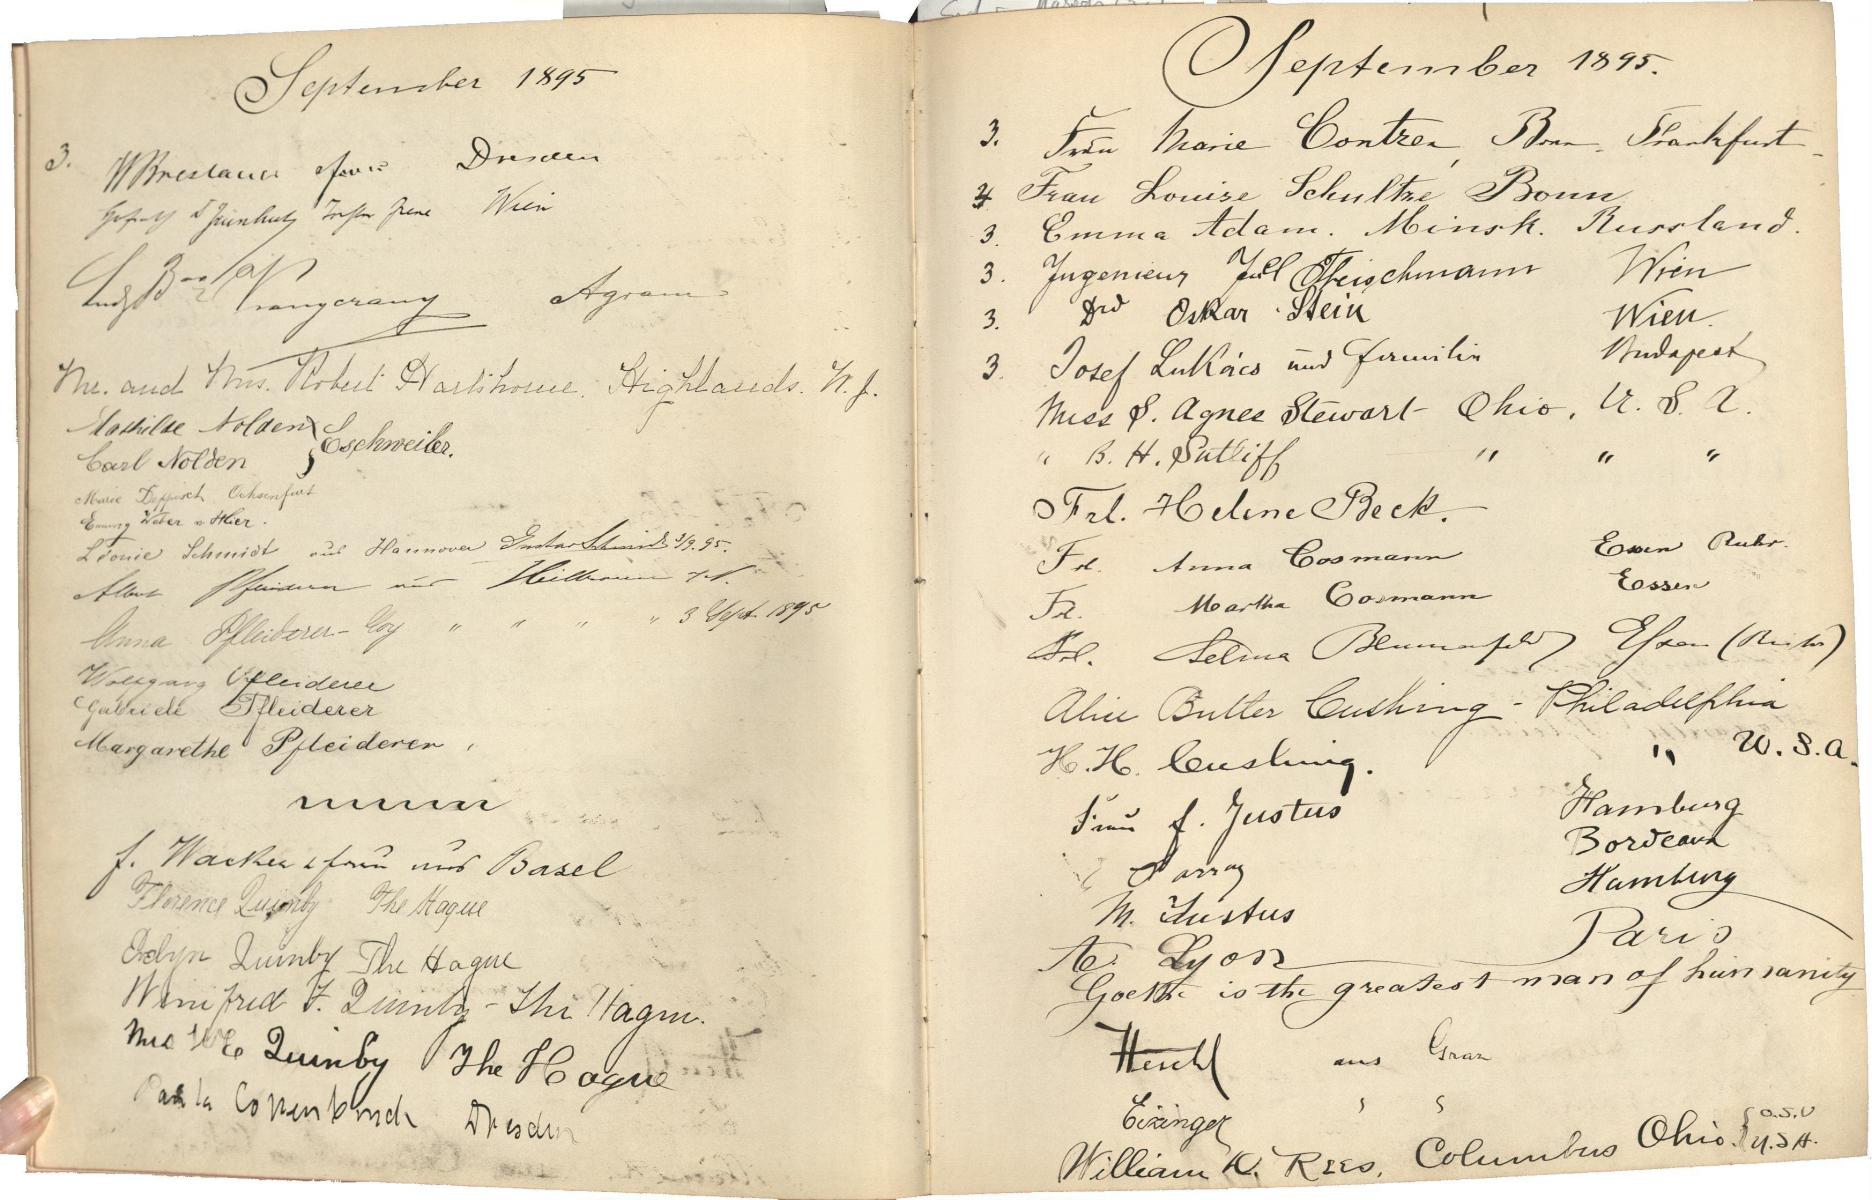 September 1895
3. W Breslauer Dresden
Wien
Agram
Mr. and Mrs. Robert Hartshorne. Highlands. N. J.
Mathilde Nolden } Eschweiler.
Carl Nolden
Marie Deppisch Ochsenfurt
Emmy Weber v. Hier.
Leonie Schmidt aus Hannover Gustav Schmidt 3/9.95.
Albert Pfleiderer aus Heilbronn a/N.
Anna Pfleiderer- " " " " 3 Sept. 1895
Wolfgang Pfleiderer
Gabriele Pfleiderer
Margarethe Pfleiderer
f. Wacker & frau aus Basel
Florence Quimby The Hague
Evelyn Quimby The Hague
Winifred F. Quimby - The Hague.
Mrs W E Quimby The Hague
Paula Dresden
September 1895.
3. Frau Marie Contzen, Bonn. Frankfurt
4 Frau Louise Schultze Bonn
3. Emma Adam. Minsk. Russland.
3. Ingenieur Fleischmann Wien
3. Oskar Stein Wien.
3. Josef Lukács und Familie Budapest
Miss S. Agnes Stewart - Ohio, U. S. A.
" B. H. Sutliff " " "
Frl. Helene Beck.
Frl. Anna Cosmann Essen Ruhr.
Frl. Martha Cosmann Essen
Frl. Selma Blumenfeld Essen (Ruhr)
Alice Butler Cushing - Philadelphia
H. H. Cushing. " U. S. A.
Frau f. Justus Hamburg
Bordeaux
M. Justus Hamburg
A. Lyon Paris
Goethe is the greatest man of humanity
Heschl aus Graz
Eixinger " "
William K. Rees, Columbus Ohio. { O.S.U
U.S.A.